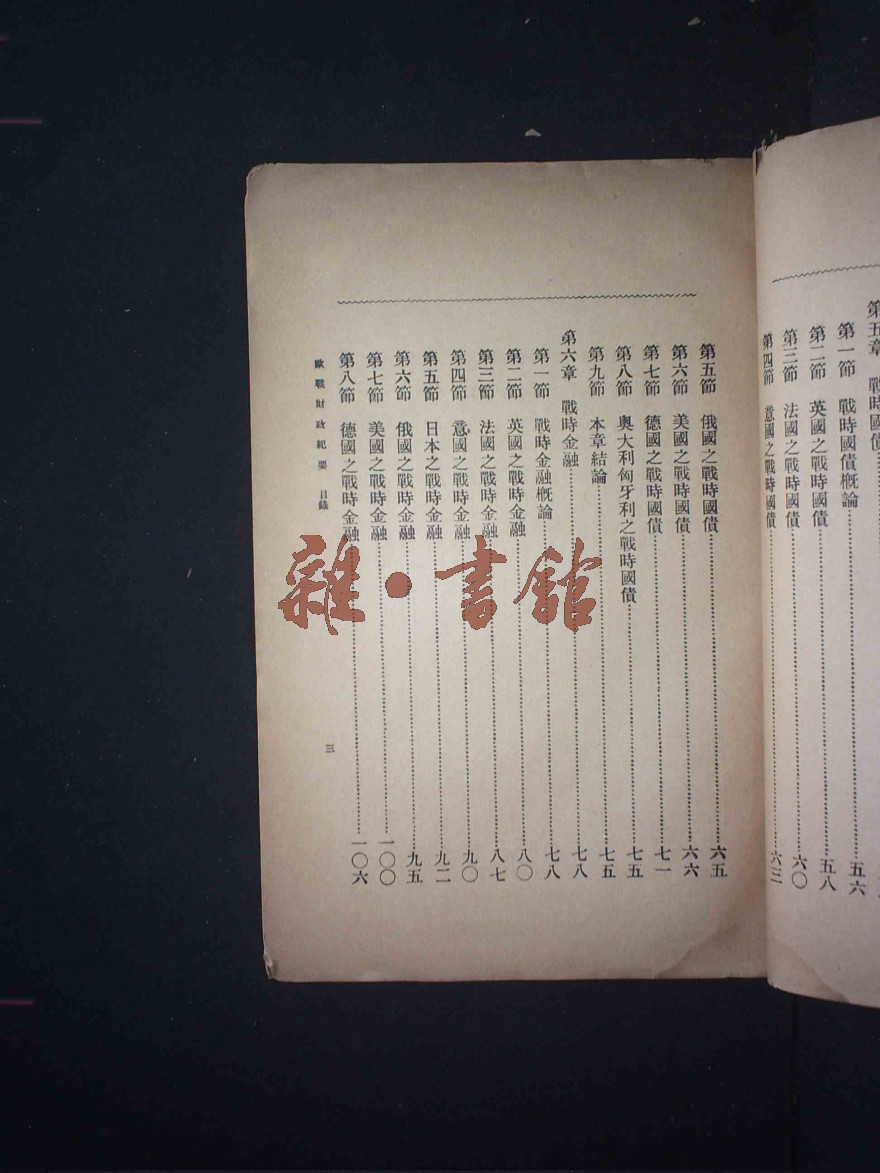 第五章　戰時國債
第一節　戰時國債槪論……五六
第二節　英國之戰時國債……五八
第三節　法國之戰時國債……六〇
第四節　意國之戰時國債……六三
第五節　俄國之戰時國債……六五
第六節　美國之戰時國債……六六
第七節　德國之戰時國債……七一
第八節　奧大利匈牙利之戰時國債……七五
第九節　本章結論……七五
第六章　戰時金融……七八
第一節　戰時金融槪論……七八
第二節　英國之戰時金融……八〇
第三節　法國之戰時金融……八七
第四節　意國之戰時金融……九〇
第五節　日本之戰時金融……九二
第六節　俄國之戰時金融……九五
第七節　美國之戰時金融……一〇〇
第八節　德國之戰時金融……一〇六
歐戰財政紀要　目錄
三
雜·書館